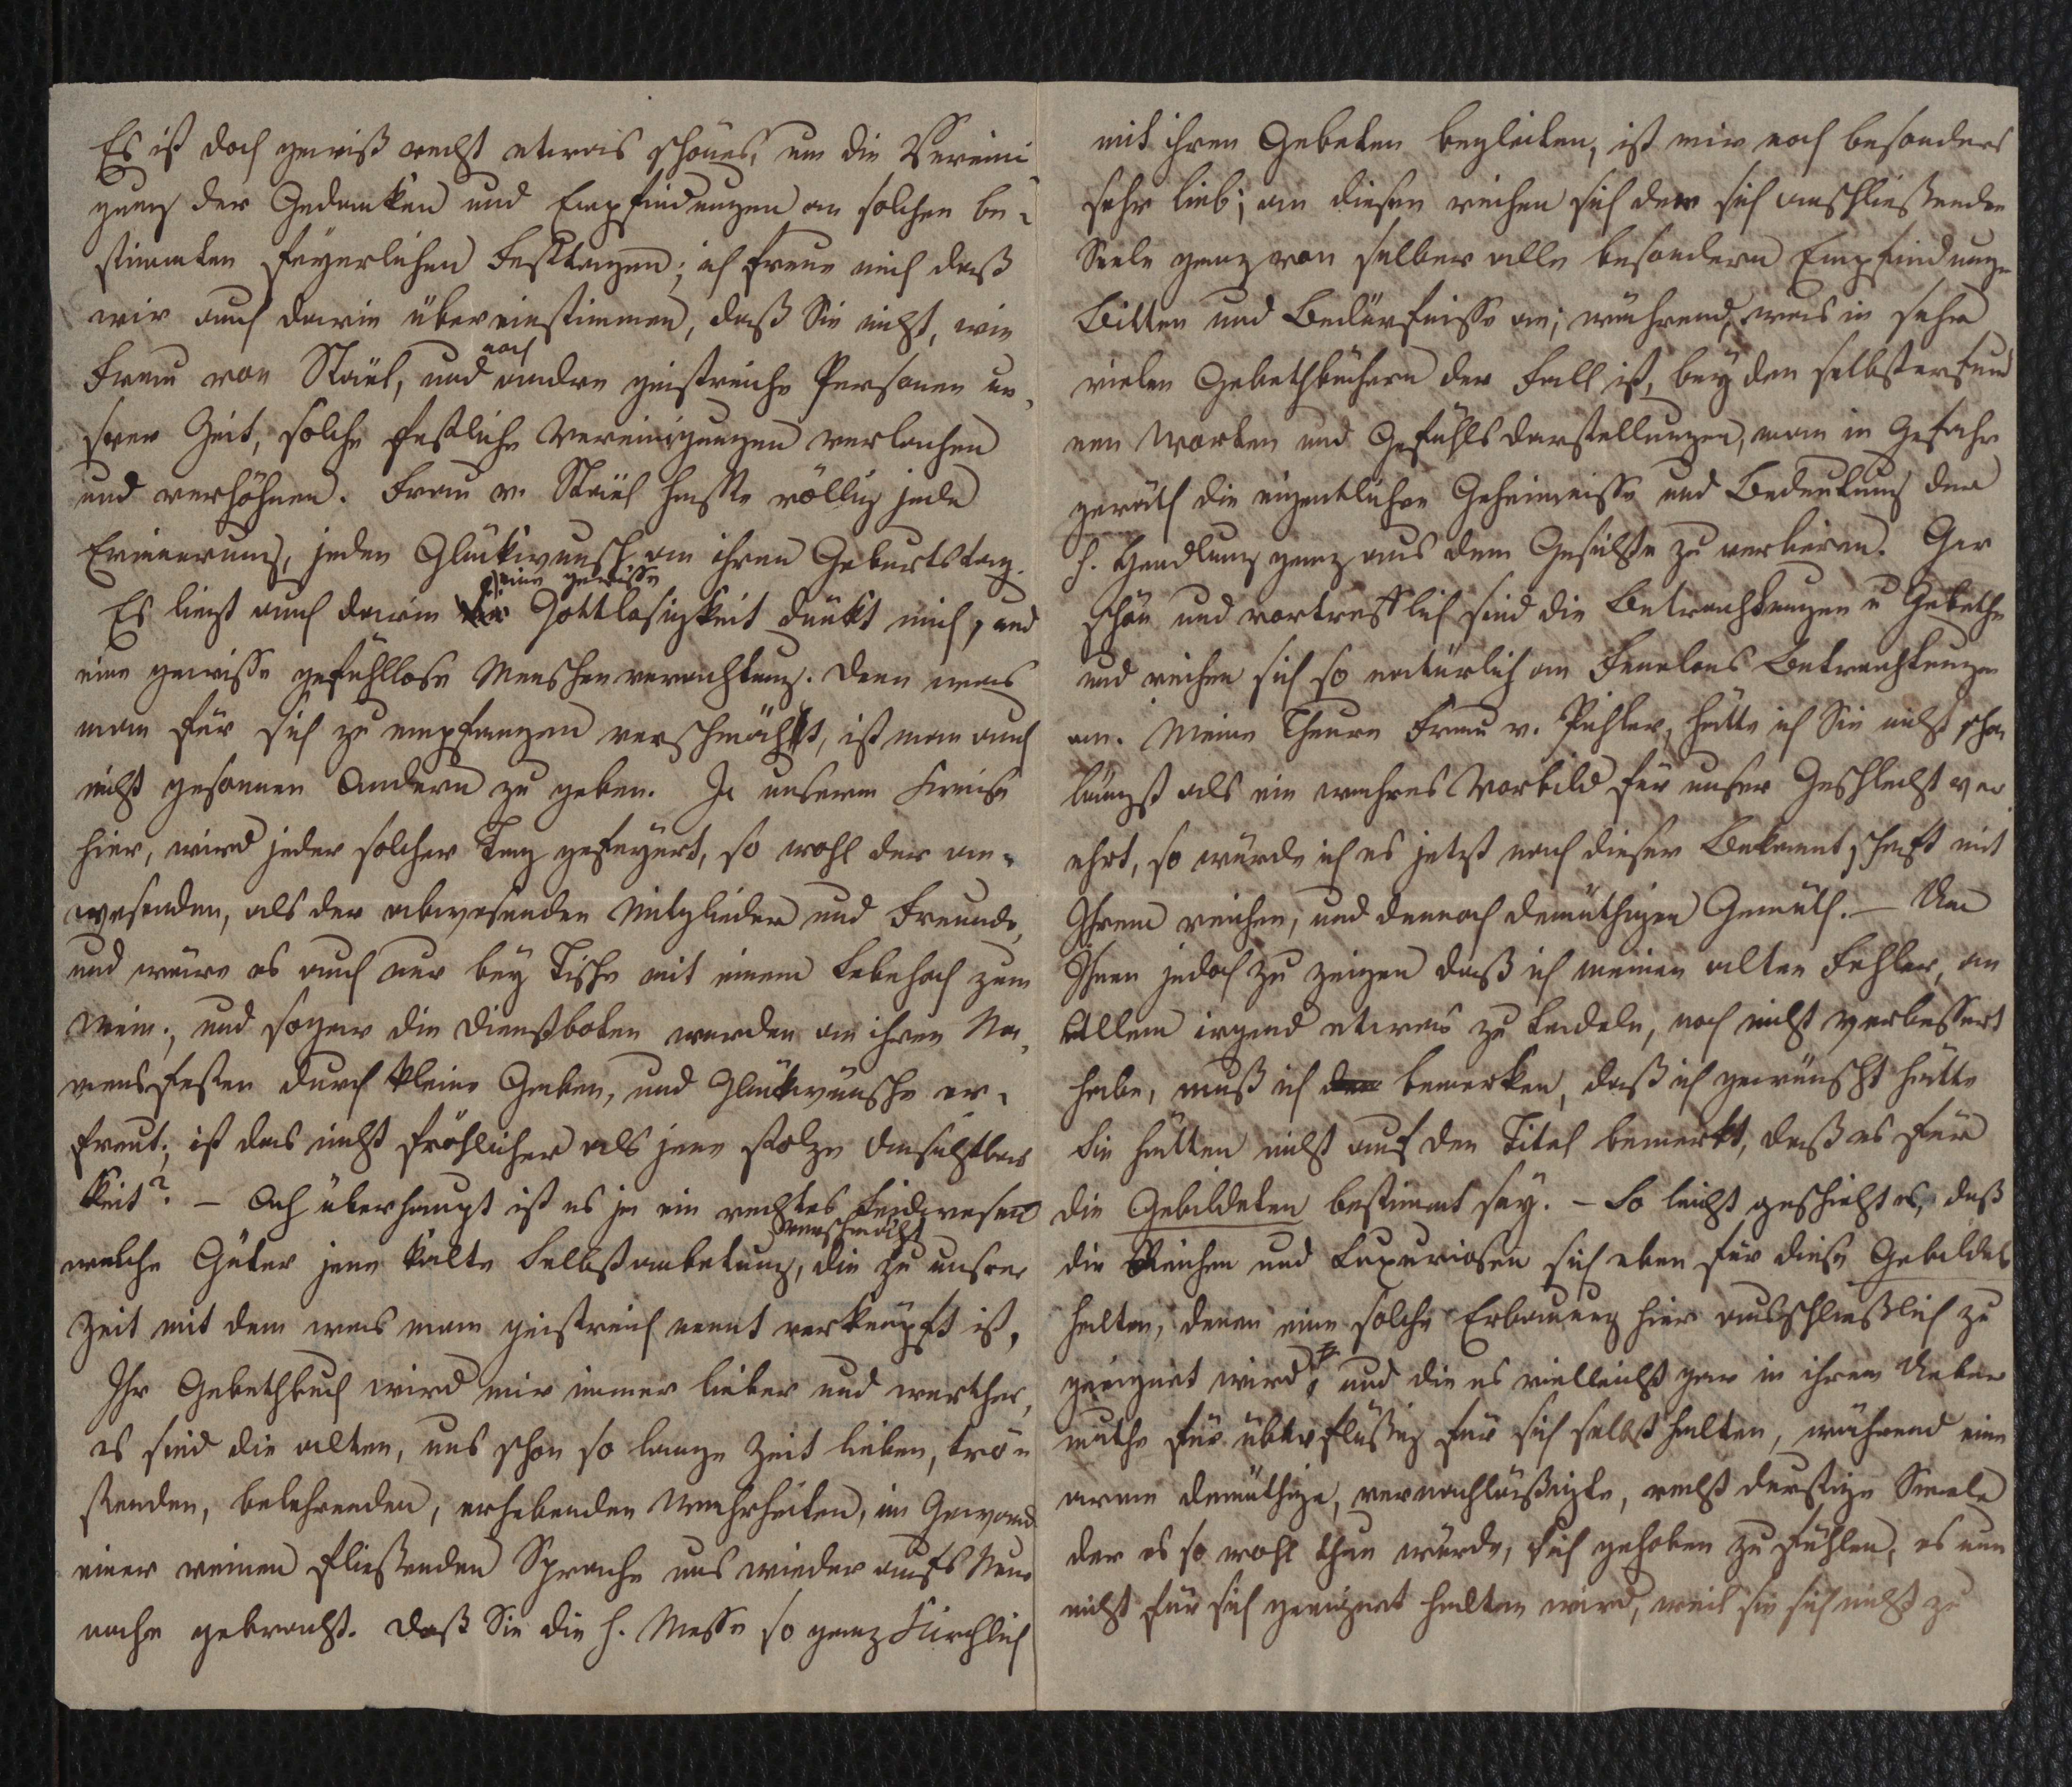 Es ist doch gewiß recht etwas schönes, um die Vereini
gung der Gedanken und Empfindungen an solchen be-
stimmten feyerlichen Festtagen; ich freue mich daß
wir auch darin übereinstimmen, daß Sie nicht, wie
Frau von Staël, und noch andre geistreiche Personen un-
srer Zeit, solche festliche Vereinigungen verlachen
und verhöhnen. Frau v. Staël haßte völlig jede
Erinnerung, jeden Glückwunsch an ihren Geburtstag.
Es liegt auch darin eine gewisse Gottlosigkeit dünkt mich, und
eine gewisse gefühllose Menschenverachtung. Denn was
man für sich zu empfangen verschmäht, ist man auch
nicht gesonnen Andern zu geben. In unserm Kreise
hier, wird jeder solcher Tag gefeyert, so wohl der an-
wesenden, als der abwesenden Mitglieder und Freunde,
und wäre es auch nur bey Tische mit einem Lebehoch zum
Wein; und sogar die Dienstboten werden an ihren Na-
mensfesten durch kleine Gaben, und Glückwünsche er-
freut; ist das nicht fröhlicher als jene stolze Unsichtbar
keit? – Ach überhaupt ist es ja ein rechtes Leidwesen
welche Güter jene kalte Selbstanbetung, verschmäht die zu unsrer
Zeit mit dem was man geistreich nennt verknüpft ist,
Ihr Gebethbuch wird mir immer lieber und werther,
es sind die alten, uns schon so lange Zeit lieben, trö-
stenden, belehrenden, erhebenden Wahrheiten, im Gewand
einer reinen fließenden Sprache uns wieder aufs Neue
nahe gebracht. Daß Sie die h. Messe so ganz Kirchlich
mit ihren Gebeten begleiten, ist mir noch besonders
sehr lieb; an diesen reihen sich der sich anschließenden
Seele ganz von selber alle besondern Empfindungen
Bitten und Bedürfnisse an; während, was in sehr
vielen Gebethbüchern der Fall ist, bey den selbsterfund
nen Worten und Gefühlsdarstellungen, man in Gefahr
geräth die eigentlichen Geheimnisse und Bedeutung der
h. Handlung ganz aus dem Gesichte zu verlieren. Gar
schön und vortrefflich sind die Betrachtungen u Gebethe
und reihen sich so natürlich an Fenelons Betrachtungen
an. Meine Theure Frau v. Pichler, hätte ich Sie nicht schon
längst als ein wahres Vorbild für unser Geschlecht ver
ehrt, so würde ich es jetzt nach dieser Bekanntschaft mit
Ihrem reichen, und dennoch demüthigen Gemüth. – Um
Ihnen jedoch zu zeigen daß ich meinen alten Fehler, an
Allem irgend etwas zu tadeln, noch nicht verbessert
habe, muß ich bemerken, daß ich gewünscht hätte
Sie hätten nicht auf den Titel bemerkt, daß es für
die Gebildeten bestimmt sey. – So leicht geschieht es, daß
die Reichen und Luxuriosen sich eben für diese Gebildet
halten, denen eine solche Erbauung hier ausschließlich zu
geeignet wird, und die es vielleicht gar in ihrem Ueber
muthe für überflüßig für sich selbst halten, während eine
arme demüthige, vernachläßigte, recht durstige Seele
der es so wohl thun würde, sich gehoben zu fühlen, es nun
nicht für sich geeignet halten wird, weil sie sich nicht zu